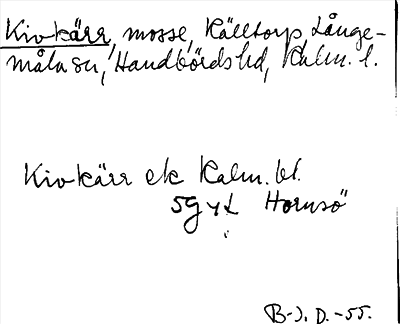 Kivkärr, mosse, Källtorp, Långe-
måla sn, Handbörds hd, Kalm. l.
Kivkärr ek Kalm. bl.
5g yx Hornsö
B-J. D. -55.